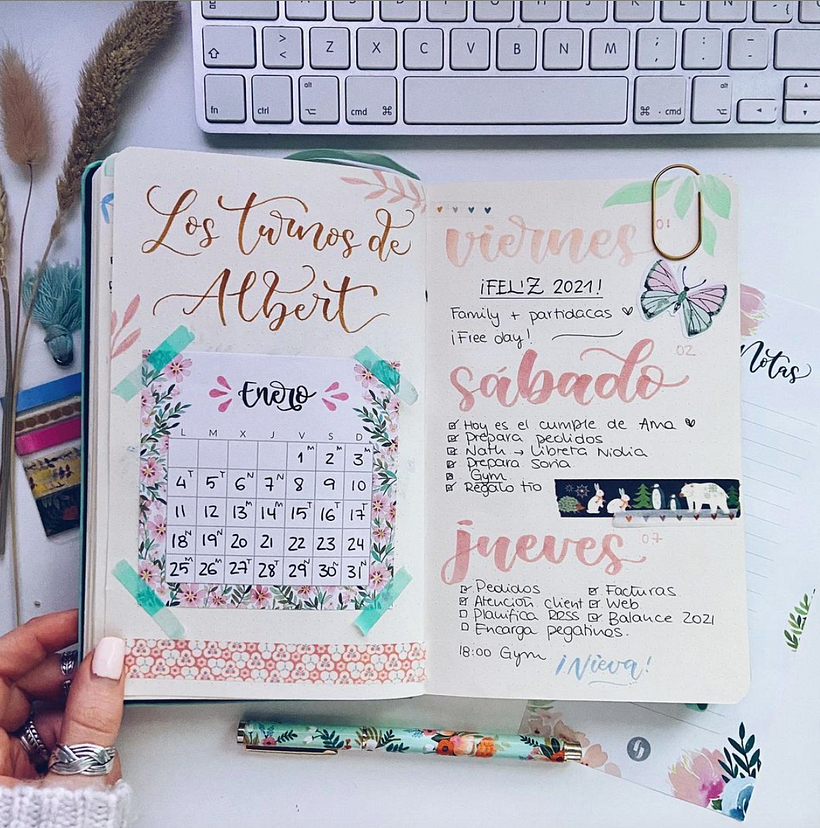 > < Z X C V B N M ; , : .
fn ctrl alt cmd ⌘ ⌘ cmd alt
Los turnos de
Albert
Enero
L M X J V S D
1M 2M 3M
4T 5T 6N 7N 8 9 10
11 12 13M 14M 15T 16T 17T
18N 19N 20 21 22 23 24
25M 26M 27T 28T 29N 30N 31N
viernes 01
¡FELIZ 2021!
Family + partidacas ♥
¡Free day!
sábado 02
Hoy es el cumple de Ama ♥
Prepara pedidos
Nath → Libreta Nidia
Prepara Soria
Gym
Regalo tío
jueves 07
Pedidos
Atención client
Planifica RRSS
Encarga pegatinas.
Facturas
Web
Balance 2021
18:00 Gym
¡Nieva!
Notas